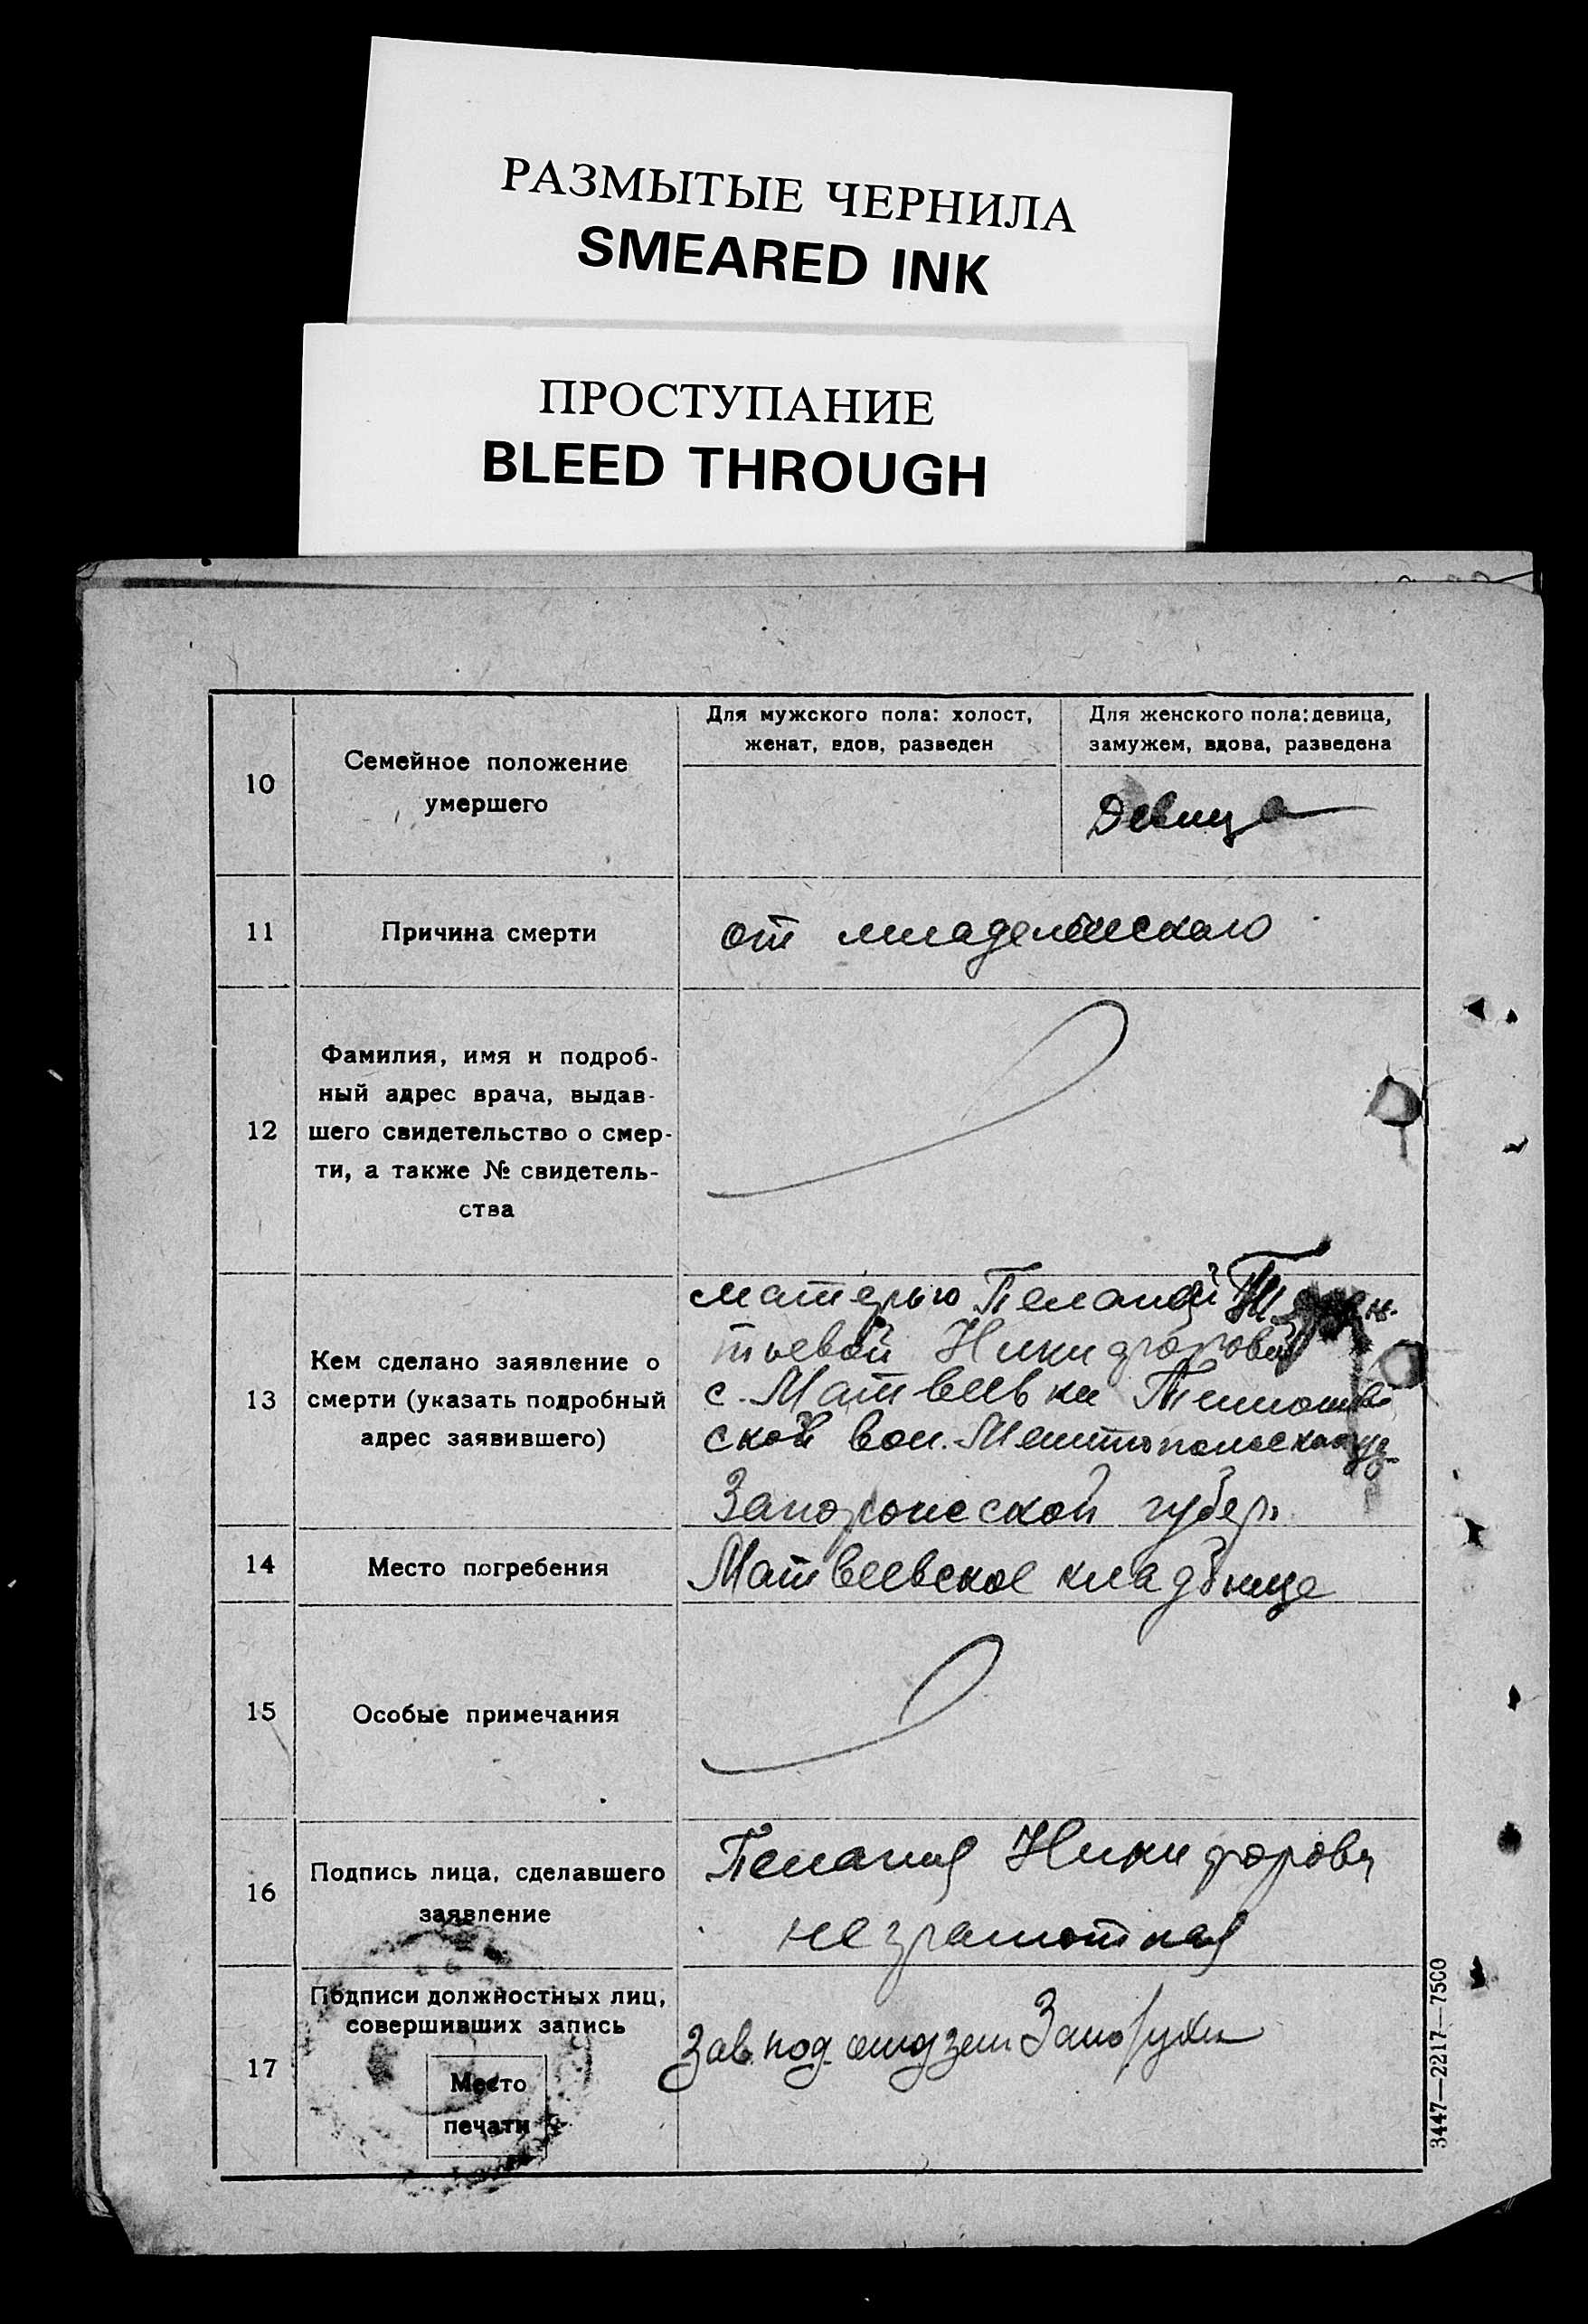 РАЗМЫТЫЕ ЧЕРНИЛА
SMEARED INK
ПРОСТУПАНИЕ
BLEED THROUGH
10
Семейное положение
умершего
Для мужского пола: холост,
женат, вдов, разведен
Для женского пола: девица,
замужем, вдова, разведена
Девица
11
Причина смерти
от младенческого
12
Фамилия, имя и подроб-
ный адрес врача, выдав-
шего свидетельство о смер-
ти, а также № свидетель-
ства
13
Кем сделано заявление о
смерти (указать подробный
адрес заявившего)
матерью Пелагеей
тьевой Никифоровой
с. Матвеевки
ской вол. Мелитопольского уез.
Запорожской губер.
14
Место погребения
Матвеевское кладбище
15
Особые примечания
16
Подпись лица, сделавшего
заявление
Пелагия Никифорова
неграмотная
17
Подписи должностных лиц,
совершивших запись
Место
печати
Зав. под
3447—2217—7500